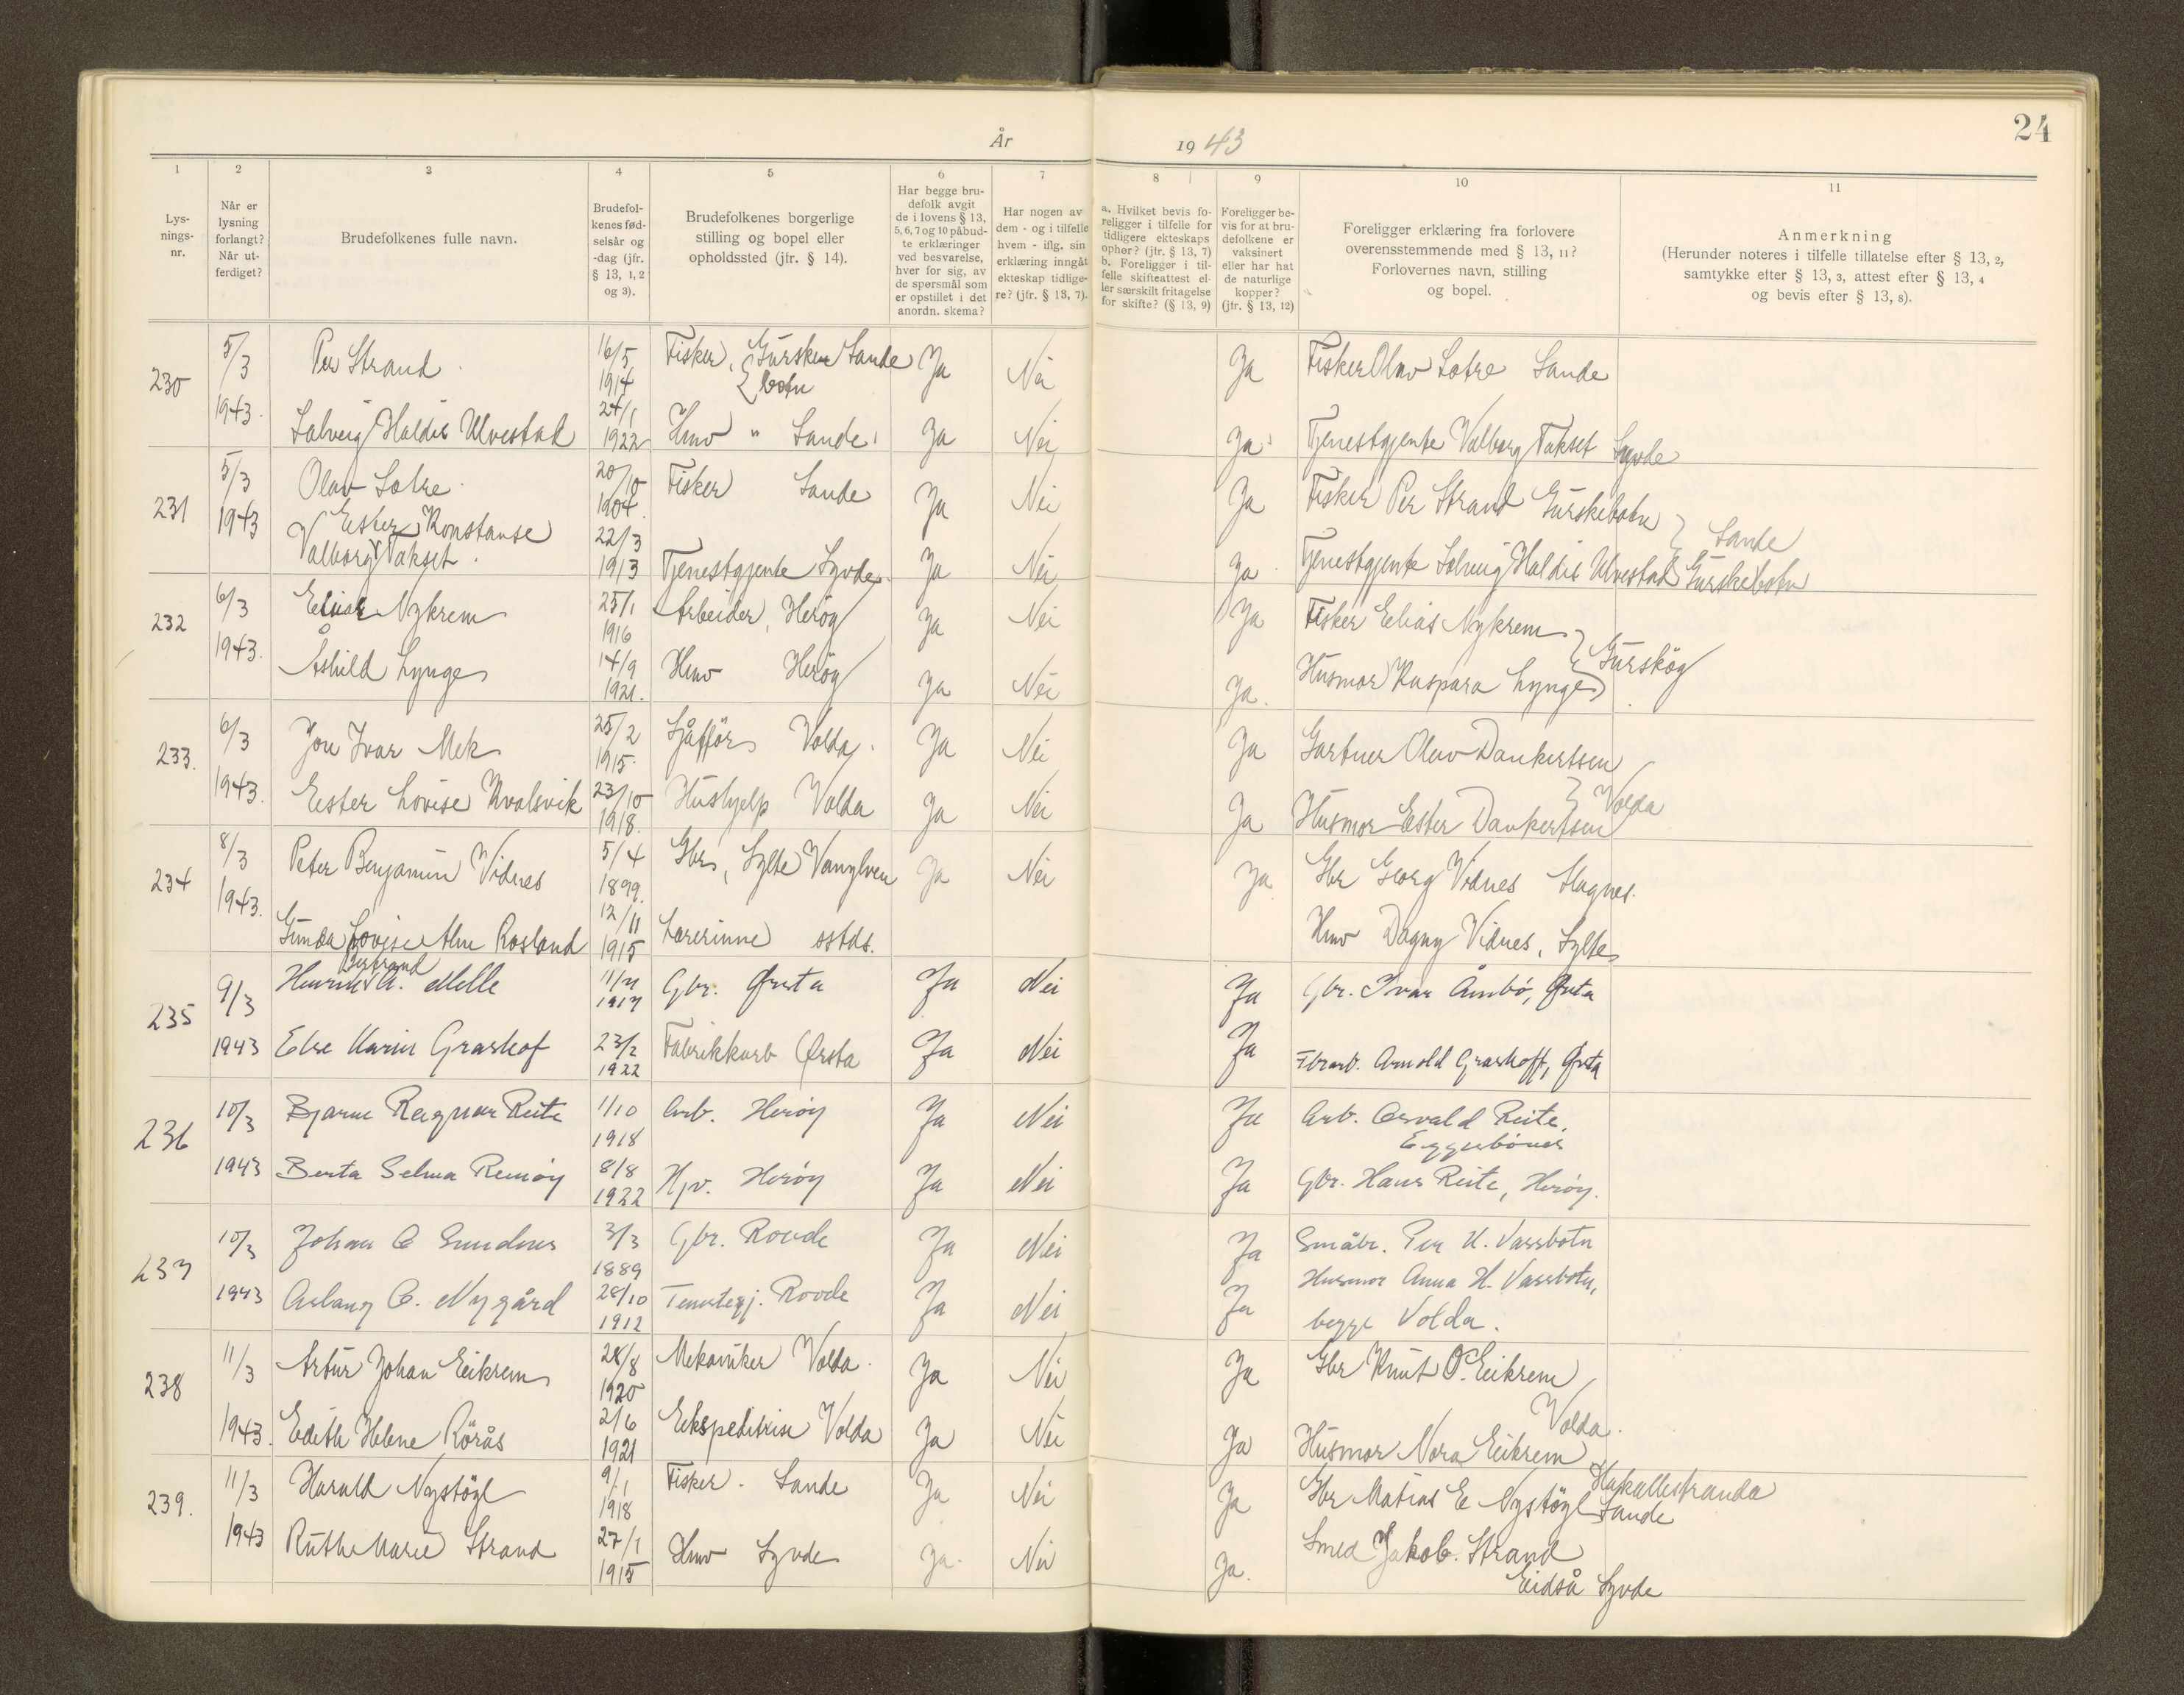 24
År 1943
1 2 3 4 5 6 7 8 9 10 11
Lys-
nings-
nr.
Når er
lysning
forlangt?
Når ut-
ferdiget?
Brudefolkenes fulle navn.
Brudefol-
kenes fød-
selsår og
-dag (jfr.
§ 13, 1, 2
og 3).
Brudefolkenes borgerlige
stilling og bopel eller
opholdssted (jfr. § 14).
Har begge bru-
defolk avgit
de i lovens § 13,
5, 6, 7 og 10 påbud-
te erklæringer
ved besvarelse,
hver for sig, av
de spørsmål som
er opstillet i det
anordn. skema?
Har nogen av
dem - og i tilfelle
hvem - iflg. sin
erklæring inngåt
ekteskap tidlige-
re? (jfr. § 13, 7).
a. Hvilket bevis fo-
religger i tilfelle for
tidligere ekteskaps
ophør? (jfr. § 13, 7)
b. Foreligger i til-
felle skifteattest el-
ler særskilt fritagelse
for skifte? (§ 13, 9)
Foreligger be-
vis for at bru-
defolkene er
vaksinert
eller har hat
de naturlige
kopper?
(jfr. § 13, 12)
Foreligger erklæring fra forlovere
overensstemmende med § 13, 11?
Forlovernes navn, stilling
og bopel.
Anmerkning
(Herunder noteres i tilfelle tillatelse efter § 13, 2,
samtykke efter § 13, 3, attest efter § 13, 4
og bevis efter § 13, 8).
230 5/3 1943. Per Strand 16/5 1914 Fisker, Gursken Sande Ja Nei Ja Fisker Olav Sætre Sande
botn
Solveig Haldis Ulvestad 24/1 1922 Hmv " Sande Ja Nei Ja Tjenestgjente Valborg Takset Syvde
231 5/3 1943 Olav Sætre 20/10 1904 Fisker Sande Ja Nei Ja Fisker Per Strand Gurskebotn
Sande
Ester Konstanse
Valborg Takset. 22/3 1913 Tjenestgjente Syvde Ja Nei Ja Tjenestgjente Solveig Haldis Ulvestad Gurskebotn
232 6/3 1943. Elias Nykrem 25/1 1916 Arbeider, Herøy Ja Nei Ja Fisker Elias Nykrem
Gurskøy
Åshild Lynge 14/9 1921. Hmv Herøy Ja Nei Ja. Husmor Kaspara Lynge
233. 6/3 1943. Jon Ivar Mek 25/2 1915 Sjåffør Volda. Ja Nei Ja Gartner Olav Dankertsen
Volda
Ester Lovise Kvalsvik 23/10 1918. Hushjelp Volda Ja Nei Ja Husmor Ester Dankertsen
234 8/3 1943. Peter Benjamin Vidnes 5/4 1899. Gbr, Sylte Vanylven Ja Nei Ja Gbr Georg Vidnes Slagnes.
Gunda Lovise Alm Rosland 12/11 1915 Lærerinne sstds. Hmv Dagny Vidnes, Sylte
235 9/3 1943 Henrik A. Melle 11/11 1917 Gbr. Ørsta Ja Nei Ja Gbr. Ivar Åmbø, Ørsta
Else Karin Grashof 23/2 1922 Fabrikkarb Ørsta Ja Nei Ja Fbrarb. Arnold Grashoff, Ørsta
236 10/3 1943 Bjarne Ragnar Reite 1/10 1918 Arb. Herøy Ja Nei Ja Arb. Osvald Reite,
Eggesbønes
Berta Selma Remøy 8/8 1922 Hjv. Herøy Ja Nei Ja Gbr. Hans Reite, Herøy.
237 10/3 1943 Johan C Sundnes 3/3 1889 Gbr. Rovde Ja Nei Ja Småbr. Per K. Vassbotn
Aslaug C. Nygård 28/10 1912 Tenestegj. Rovde Ja Nei Ja Husmor Anna H. Vassbotn,
begge Volda.
238 11/3 1943. Artur Johan Eikrem 28/8 1920 Mekaniker Volda. Ja Nei Ja Gbr Knut O. Eikrem
Volda.
Edith Helene Rørås 2/6 1921 Ekspeditrise Volda Ja Nei Ja Husmor Nora Eikrem
239. 11/3 1943 Harald Nystøyl 9/1 1918 Fisker. Sande Ja Nei Ja Gbr Matias E Nystøyl Hakallestranda
Sande
Ruth Marie Strand 27/1 1915 Hmv Syvde Ja. Nei Ja. Smed Jakob Strand
Eidså Syvde